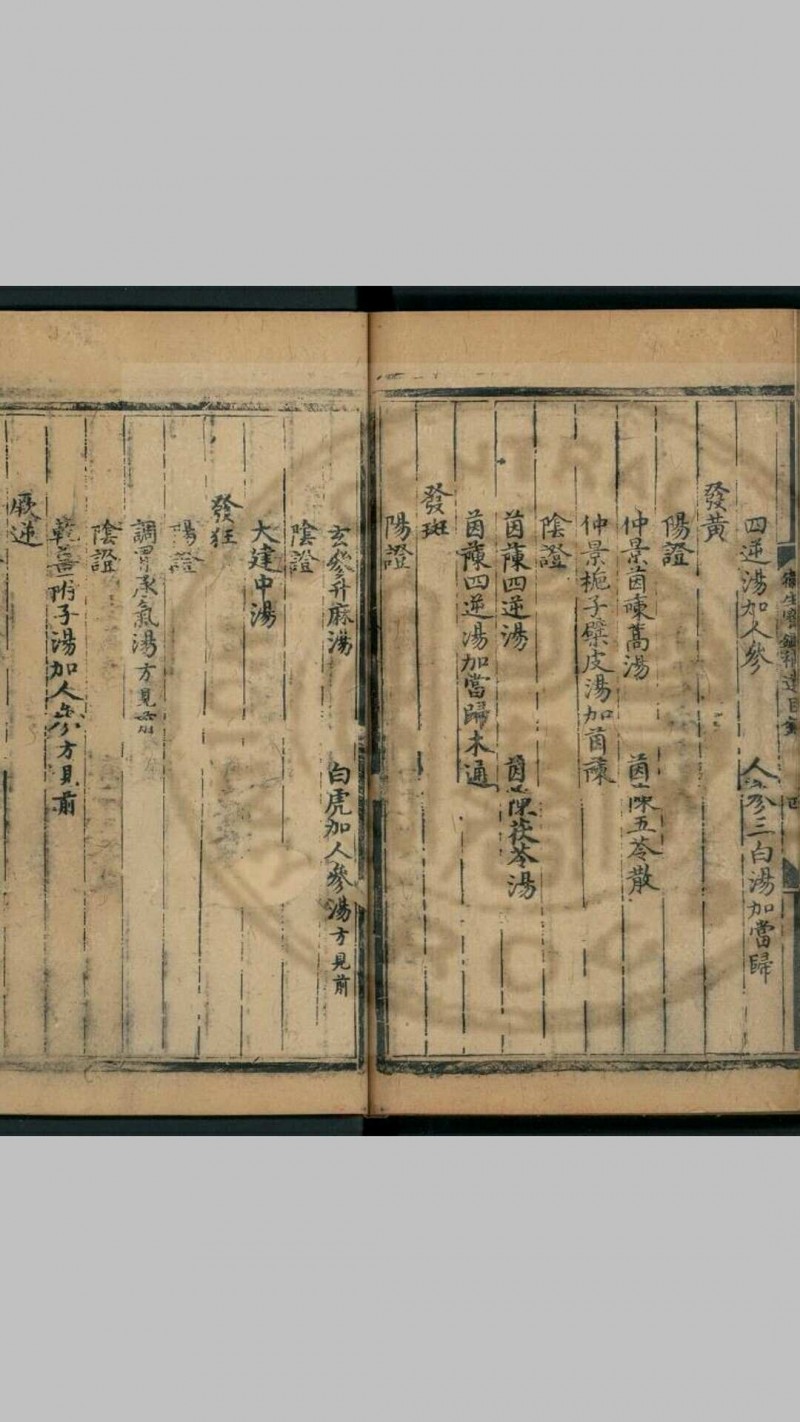 四逆湯加人參　人參三白湯加當歸
發黃
陽證
仲景茵蔯蒿湯　茵陳五苓散
仲景梔子檗皮湯加茵蔯
陰證
茵蔯四逆湯　茵陳茯苓湯
茵蔯四逆湯加當歸木通
發斑
陽證
玄參升麻湯　白虎加人參湯方見前
陰證
大建中湯
發狂
陽證
調胃承氣湯方見前
陰證
乾薑附子湯加人參方見前
厥逆